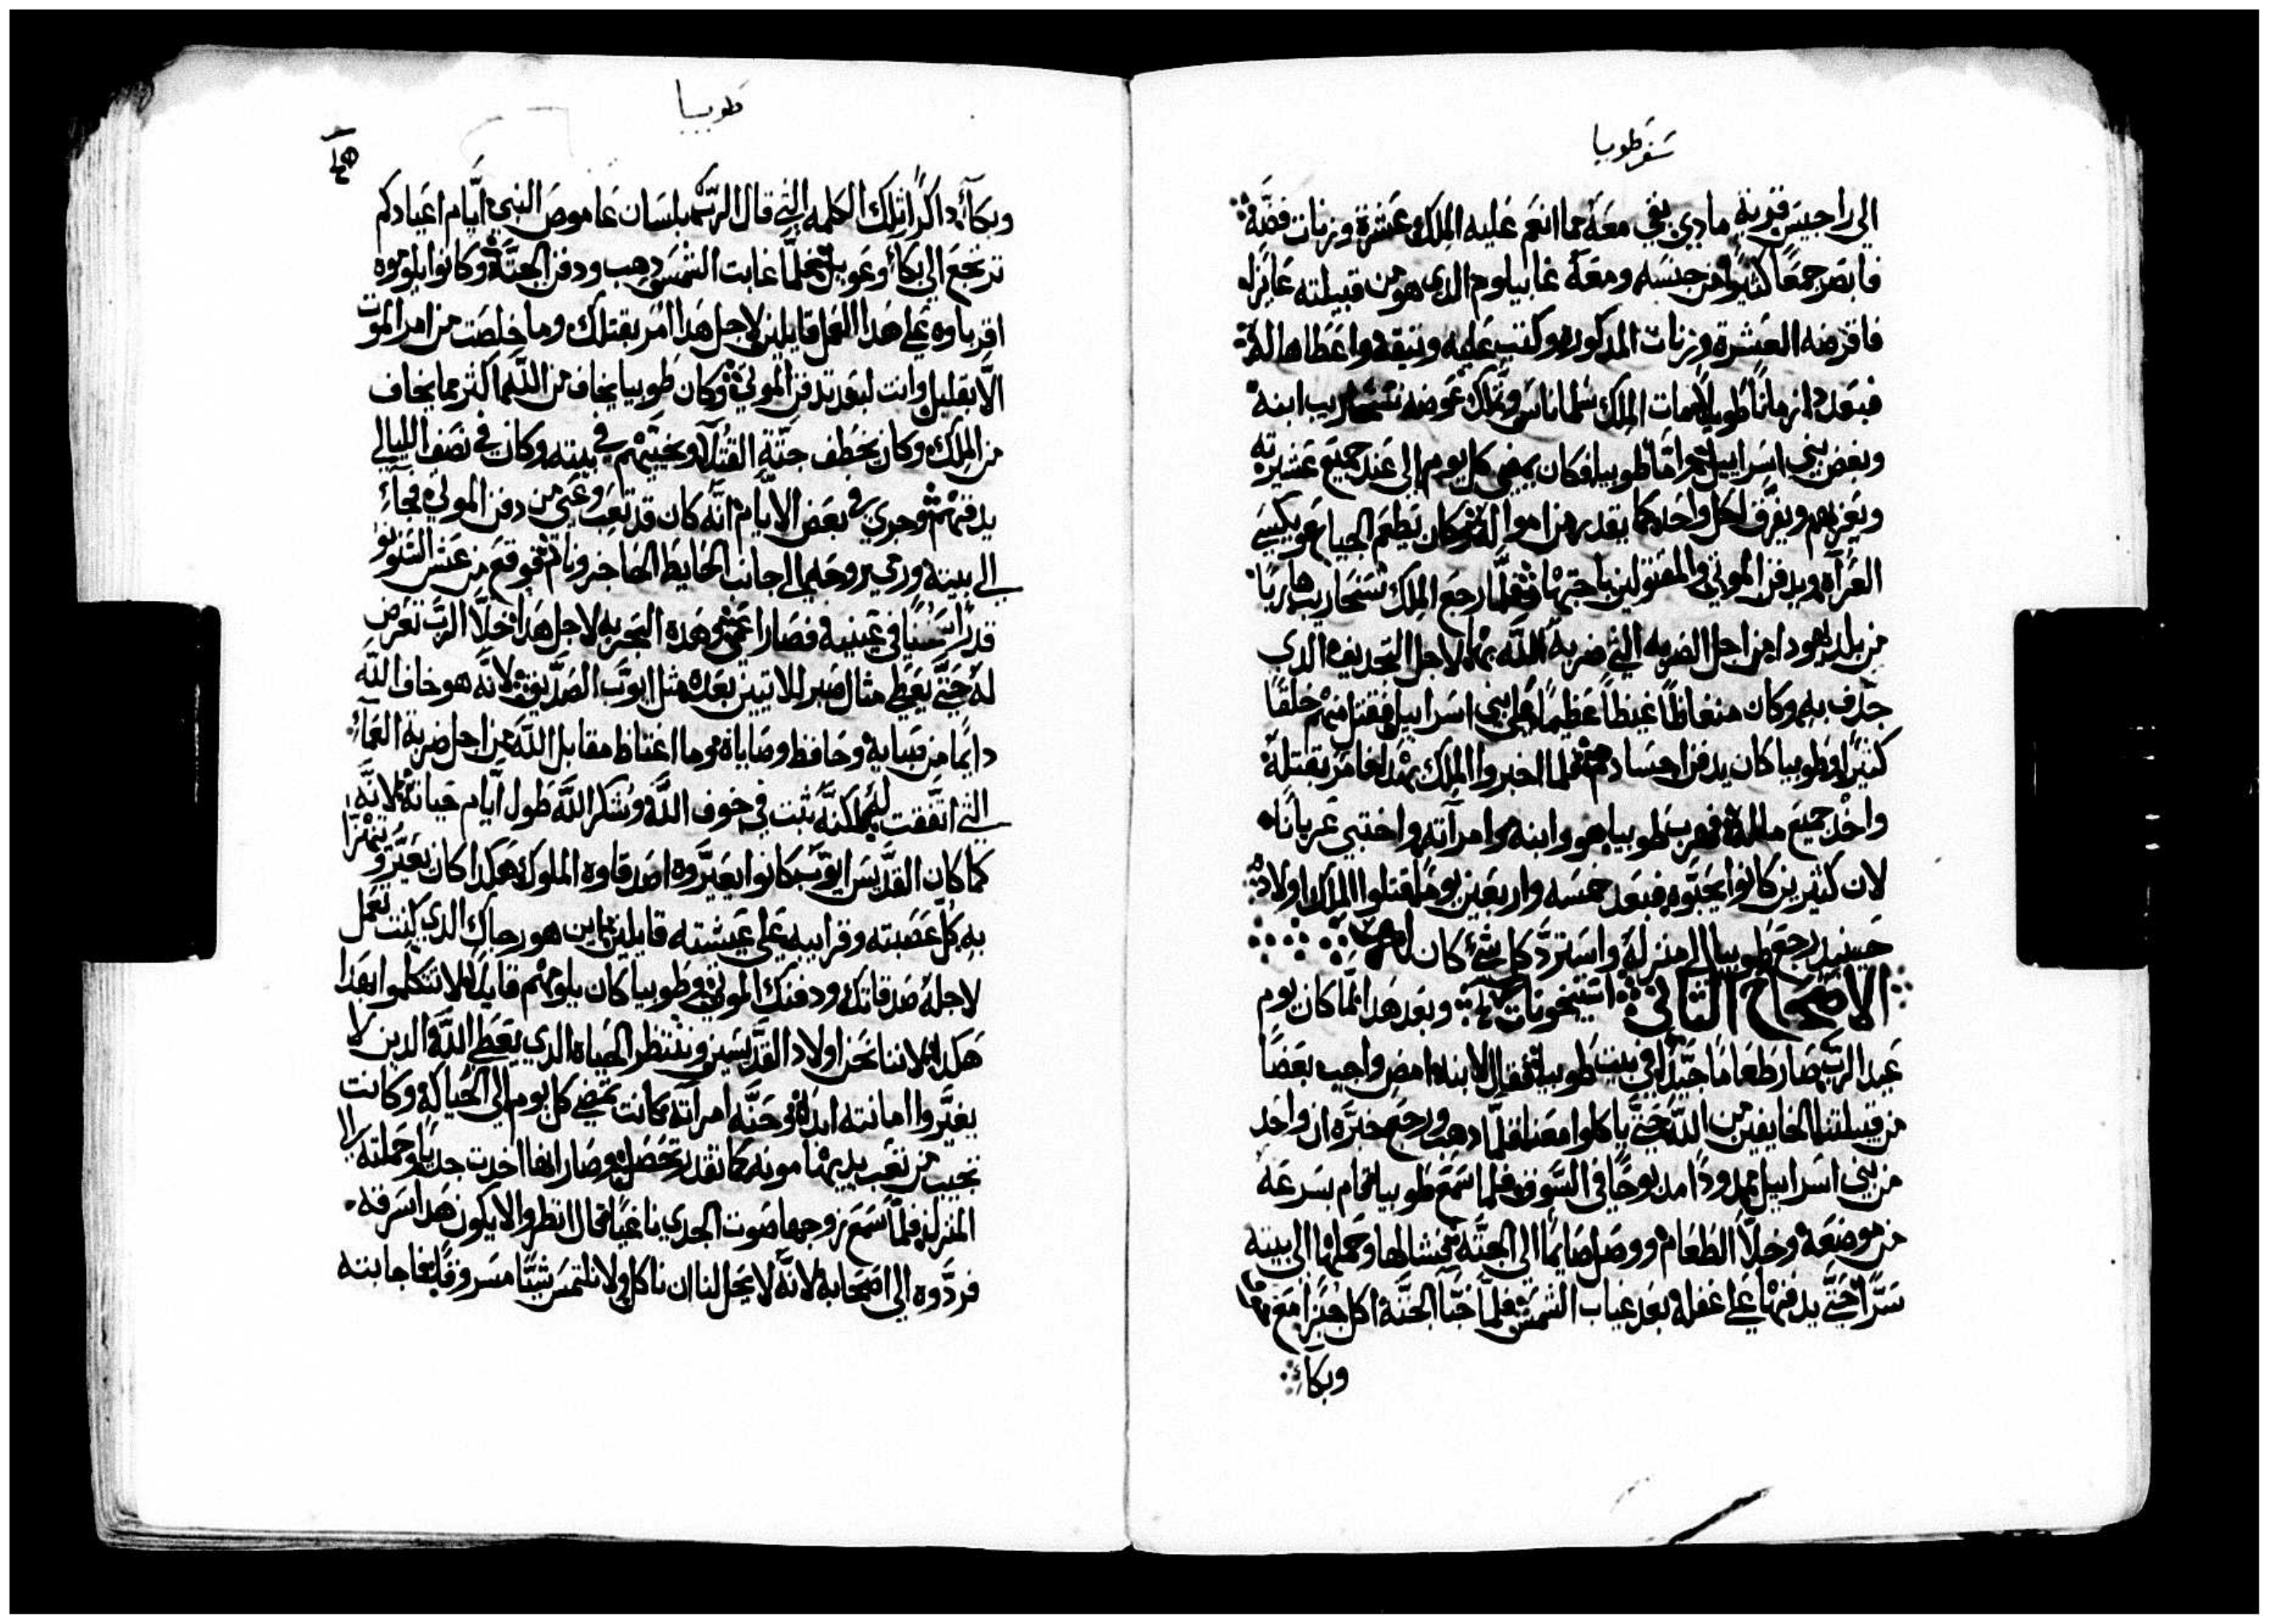 سفر طوبيا
الى راجيس قرية مادي بقي معه مما انعم عليه الملك عشرة وزنات فضة
فابصر جمعا كثيرا من جنسه ومعه غابيلوم الدى هو من قبيلته عايزا
فاقرضه العشرة وزنات المدكوره وكتب عليه وثيقه واعطاها له
فبعد زمانا طويلا مات الملك شلماناسر وتملك عوضه سنحاريب ابنه
وبغض بني اسراييل جدا اما طوبيا فكان يمضي كل يوم الى عند جميع عشيرته
ويعزيهم ويفرق لكل واحد كما يقدر من امواله وكان يطعم الجياع ويكسي
العراه ويدفن الموتي والمقتولين باجتهاد فلما رجع الملك سنحاريب هاربا
من بلد يهودا من اجل الضربه التي ضربه الله بها لاجل التجديف الدي
جدف به وكان مغتاظا غيظا عظيما على بني اسراييل فقتل منهم خلقا
كثيرا وطوبيا كان يدفن اجسادهم فلما اخبروا الملك بهدا فامر بقتله
واخد جميع ماله فهرب طوبيا هو وابنه وامراته واختبي عريانا
لان كثيرين كانوا يحبوه فبعد خمسه واربعين يوما قتلوا الملك اولاده
حينيد رجع طوبيا الى منزله واسترد كل شئ كان له
الاصحاح الثاني وبعد هدا لما كان يوم
عيد الرب صار طعاما جيدا في بيت طوبيا فقال لابنه امض واجيب بعضا
من قبيلتنا الخايفين من الله حتى ياكلوا معنا فلما دهب ورجع خبره ان واحد
من بني اسراييل ممدودا مدبوحا في السوق فلما سمع طوبيا قام بسرعه
من موضعه وخلا الطعام ووصل صايما الى الجته فشالها وحملها الى بيته
سرا حتى يدفنها على غفله بعد غياب الشمس فلما خبا الجته اكل خبزا مع
وبكاء
طوبيا
وبكاء داكرا تلك الكلمه التي قال الرب بلسان عاموص النبي ايام اعيادكم
ترجع الى بكاء وعويل فلما غابت الشمس دهب ودفن الجته وكانوا يلوموه
اقرباوه على هدا العمل قايلين لاجل هدا امر بقتلك وما خلصت من امر الموت
الا بقليل وانت ليعد تدفن الموتي وكان طوبيا يخاف من الله اكثر مما يخاف
من الملك وكان يخطف جتة القتلا ويخبيهم في بيته وكان في نصف الليالي
يدفنهم وجري في بعض الايام انه كان قد تعب وعيي من دفن الموتي فجاء
الى بيته ورمي بروحه الى جانب الحايط الحاجز ونام فوقع من عش السنونو
قدرا سخنا في عينيه فصار اعمي وهده التجربه لاجل هدا خلا الرب تعرض
له حتي يعطي مثال صبر للاتيين بعده مثل ايوب الصديق لانه هو خاف الله
دايما من صبايه وحافظ وصاياه وما اغتاظ مقابل الله من اجل ضربة العماء
التي اتفقت له لكنه ثبت في خوف الله وشكر الله طول ايام حياته لانه
كما كان القديس ايوب كانوا يعيروه اصدقاوه الملوك هكدا كان يعير
به كل عصبته وقرايبه على عيشته قايلين اين هو رجاك الدي كنت تعمل
لاجله صدقاتك ودفنك الموتي وطوبيا كان يلومهم قايلا لا تتكلموا بهدا
هكدا لاننا نحن اولاد القديسين وننتظر الحياه الدي يعطي الله الدين لا
يغيروا امانته ابدا وحنه امراته كانت تمضي كل يوم الى الحياكه وكانت
تجيب من تعب يديها مونه كما تقدر تحصل وصار انها اخدت جديا وحملته الى
المنزل فلما سمع زوجها صوت الجدي ناغيا قال انظروا لا يكون هدا سرقه
فردوه الى اصحابه لانه لا يحل لنا ان ناكل ولا نلتمس شيا مسروقا فاجابته